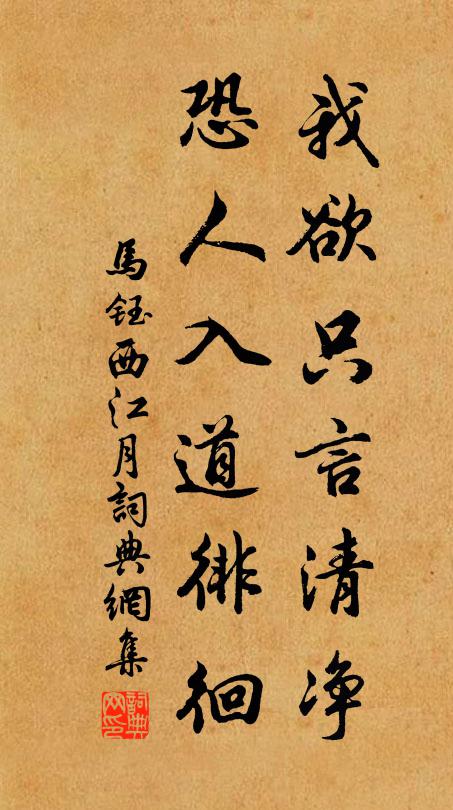 我欲只言清净
恐人入道徘徊
馬鈺西江月詞典網集
詞典網印